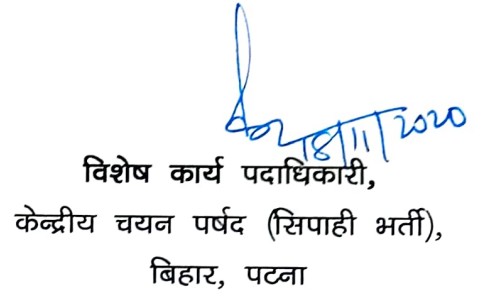 18/11/2020
विशेष कार्य पदाधिकारी,
केन्द्रीय चयन पर्षद (सिपाही भर्ती),
बिहार, पटना